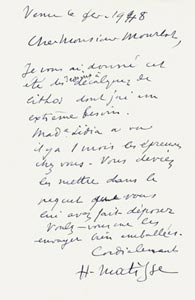 Vence le fev. 1948
Cher Monsieur Mourlot,
Je vous ai donné cet
été des décalques de
lithos dont j'ai un
extrême besoin.
Made Lidia a vu
il y a 1 mois les épreuves
chez vous. Vous devez
les mettre dans le
que vous
lui avez fait déposer
Voulez-vous me les
envoyer bien emballées.
Cordialement
H. Matisse